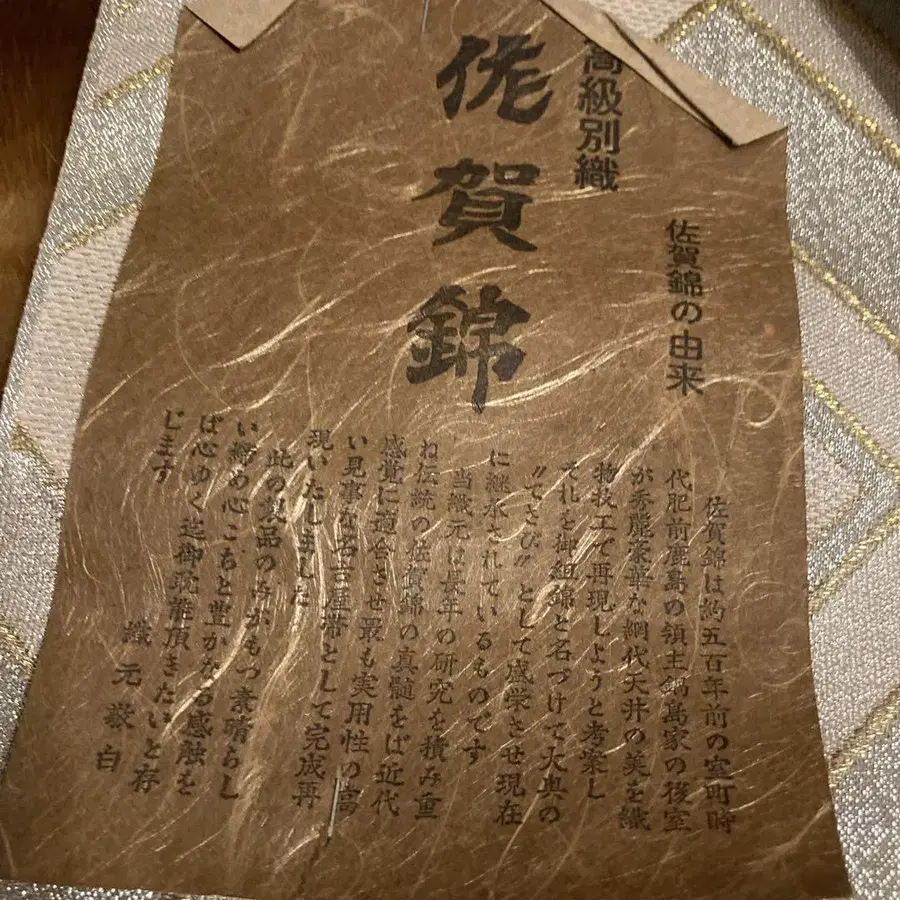 高級別織
佐賀錦
佐賀錦の由来
佐賀錦は約五百年前の室町時
代肥前鹿島の領主鍋島家の後室
が秀麗豪華な網代天井の美を織
物技工で再現しようと考案し
それを御組錦と名づけて大奥の
〃てさび〃として盛栄させ現在
に継承されているものです
当織元は長年の研究を積み重
ね伝統の佐賀錦の真髄をば近代
感覚に適合させ最も実用性の高
い見事な名古屋帯として完成再
現いたしました
此の製品のみがもつ素晴らし
い締め心こちと豊かなる感触を
ば心ゆく迄御堪能頂きたいと存
じます
織元敬白